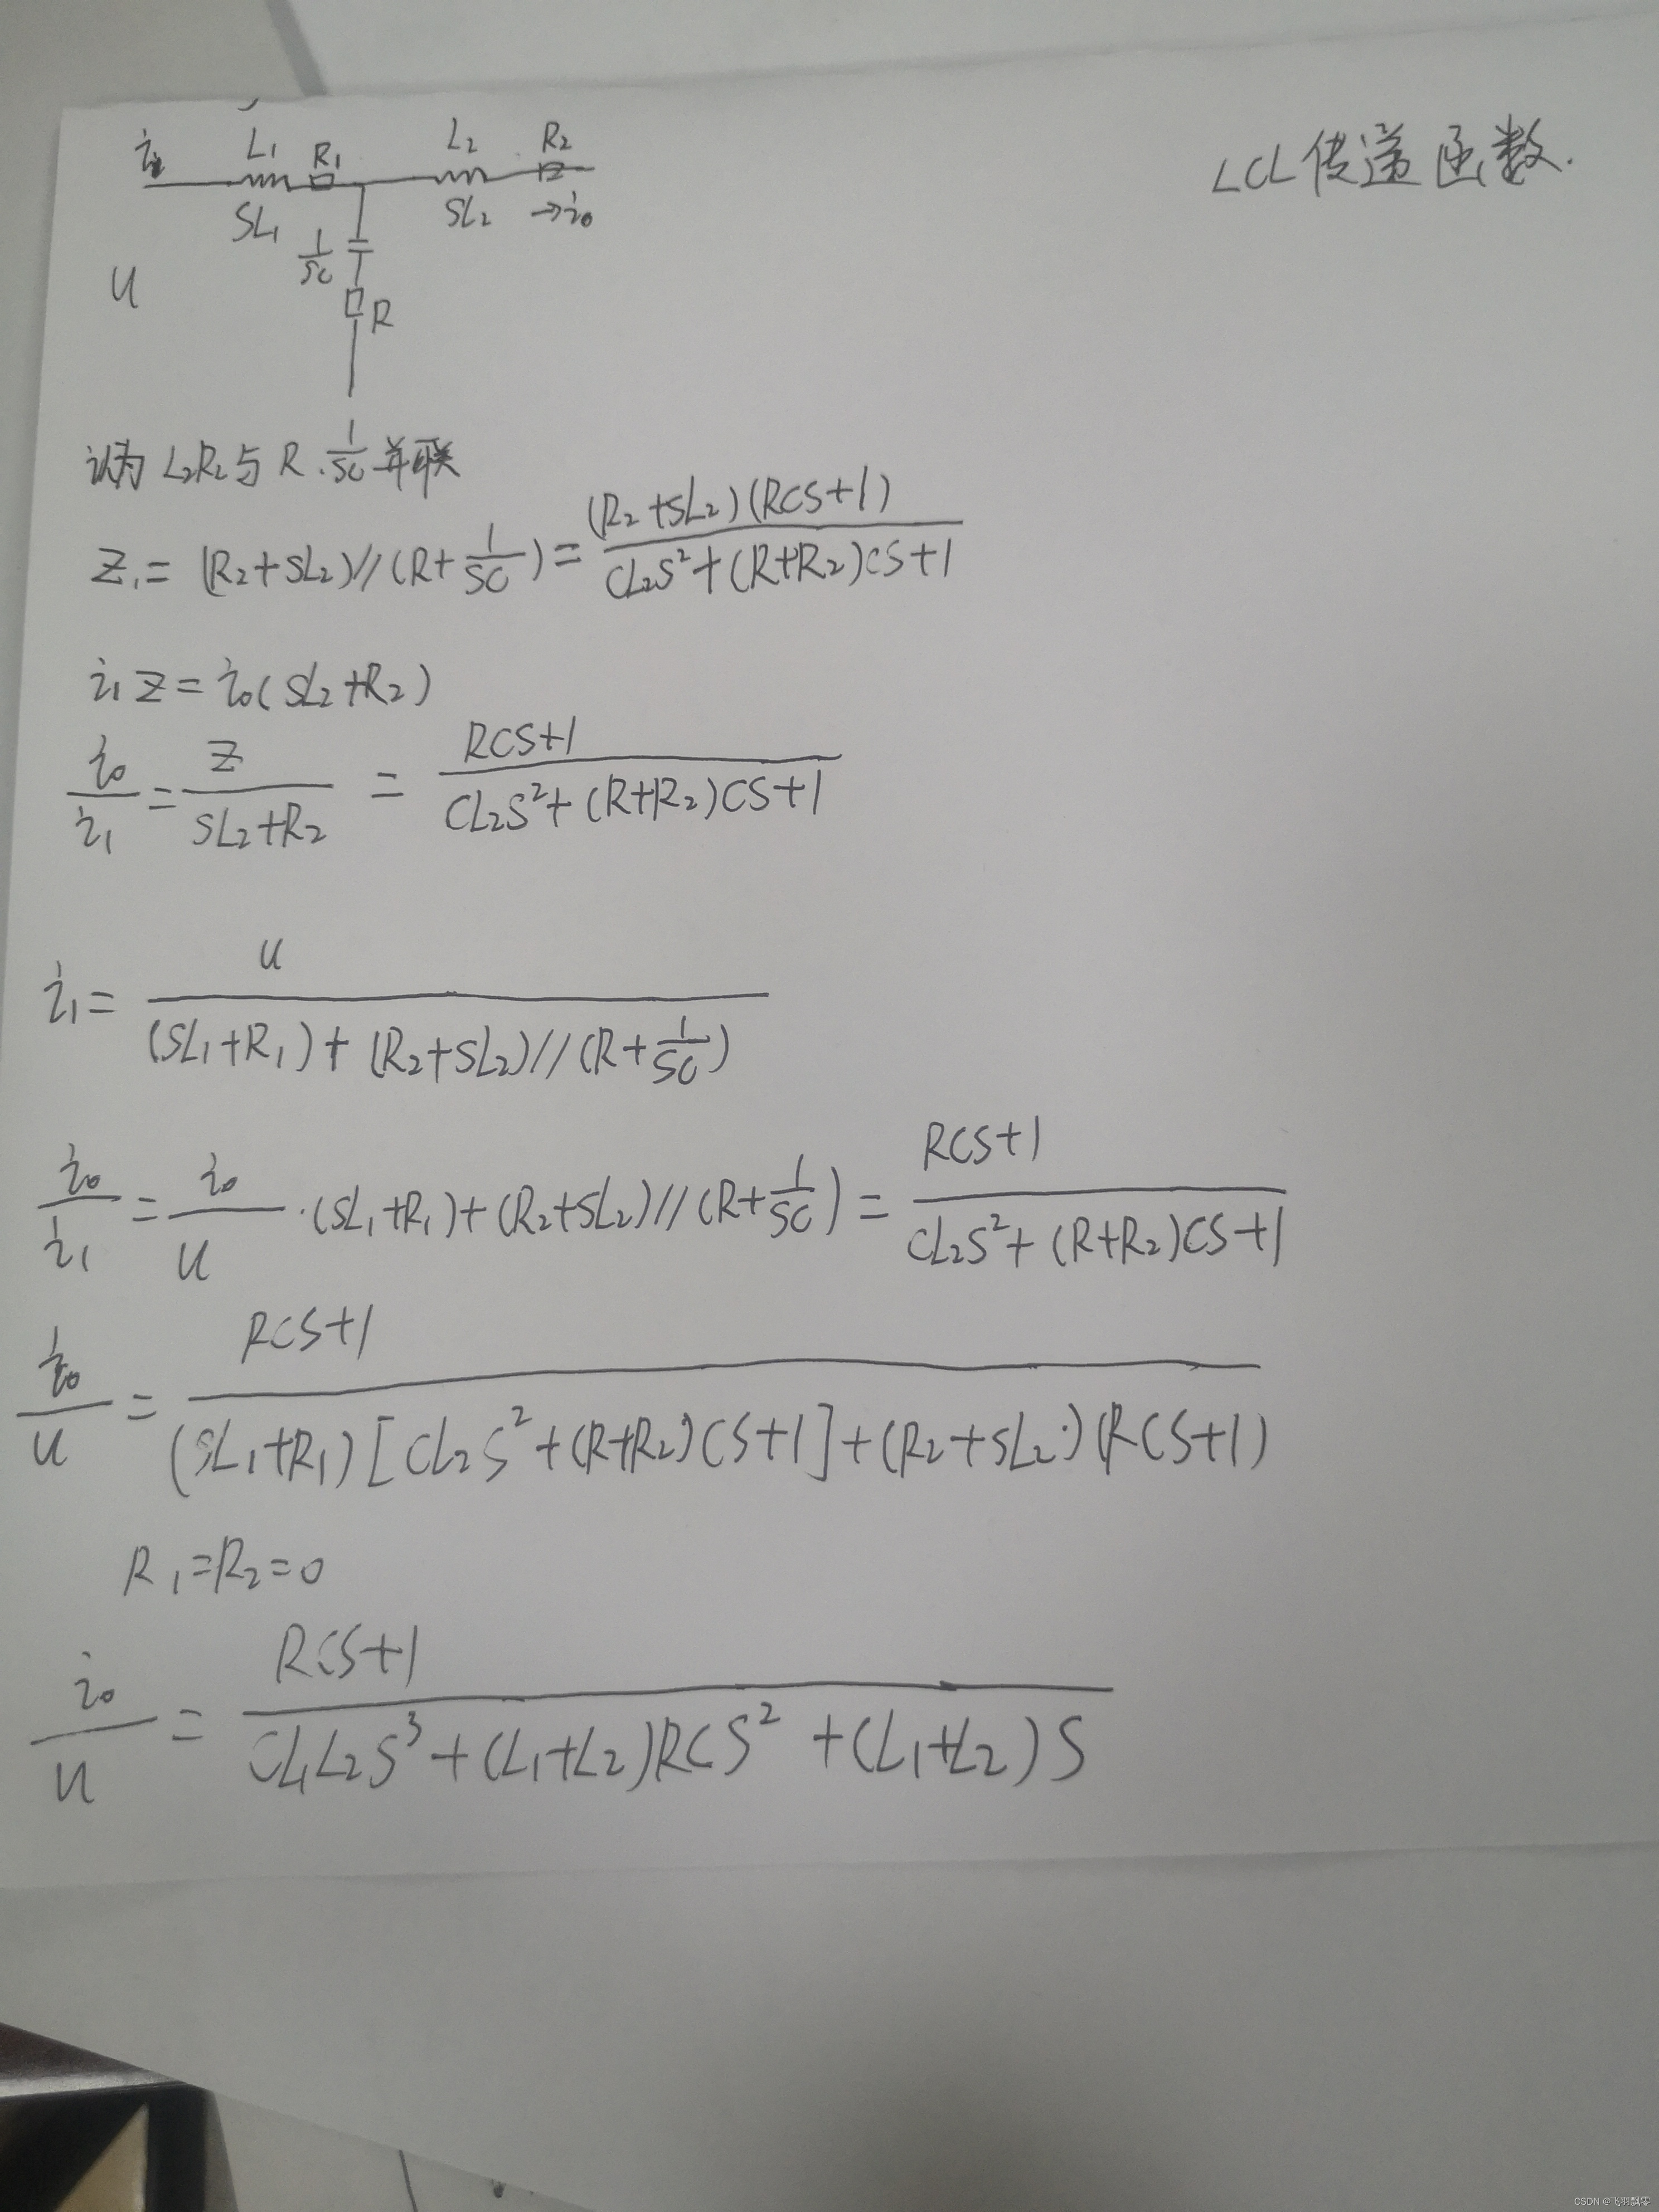 LCL传递函数.
i₁ L₁ R₁ L₂ R₂
SL₁ SL₂ →i₀
1/SC
U
R
认为 L₂R₂与 R.1/SC 并联
Z₁= (R₂+SL₂)//(R+1/SC)= (R₂+SL₂)(RCS+1)/(CL₂S²+(R+R₂)CS+1)
i₁Z=i₀(SL₂+R₂)
i₀/i₁=Z/(SL₂+R₂) = (RCS+1)/(CL₂S²+(R+R₂)CS+1)
i₁= U/((SL₁+R₁)+(R₂+SL₂)//(R+1/SC))
i₀/i₁=i₀/U·(SL₁+R₁)+(R₂+SL₂)//(R+1/SC)= (RCS+1)/(CL₂S²+(R+R₂)CS+1)
i₀/U= (RCS+1)/((SL₁+R₁)[CL₂S²+(R+R₂)CS+1]+(R₂+SL₂)(RCS+1))
R₁=R₂=0
i₀/U = (RCS+1)/(CL₁L₂S³+(L₁+L₂)RCS²+(L₁+L₂)S)
CSDN @飞羽飘零